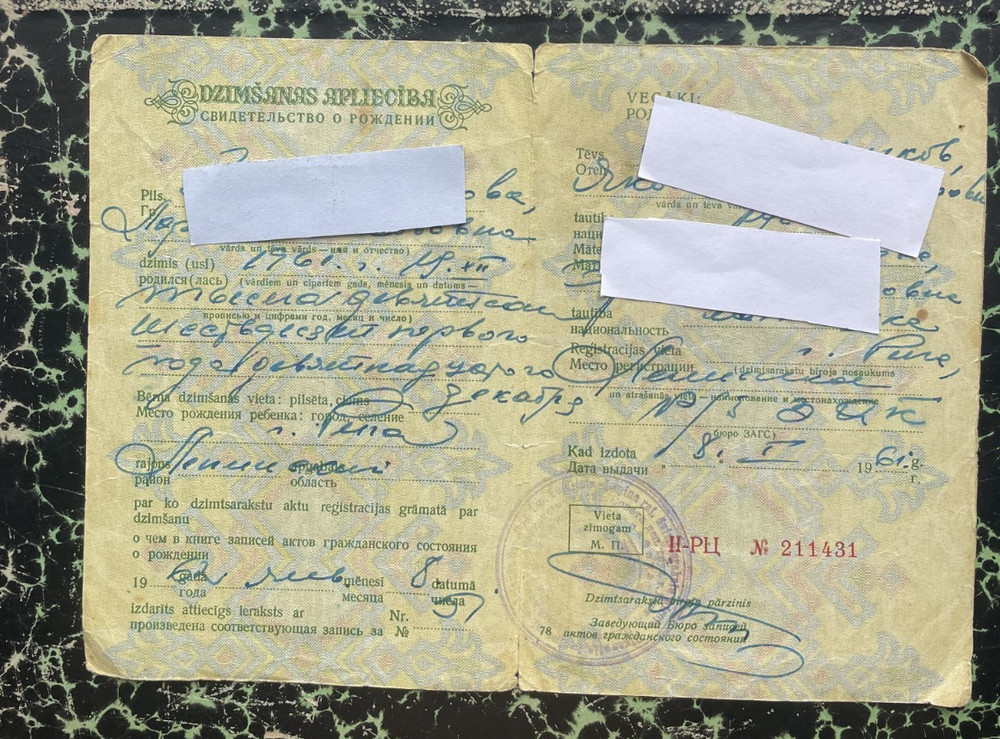 DZIMŠANAS APLIECĪBA
СВИДЕТЕЛЬСТВО О РОЖДЕНИИ
Pils.
Гр.
ова,
овна
vārds un tēva vārds — имя и отчество)
dzimis (usi) 1961 г. 19.XII
родился(лась) (vārdiem un cipariem gads, mēnesis un datums —
тысяча девятьсот
прописью и цифрами год, месяц и число)
шестьдесят первого
года девятнадцатого
декабря
Bērna dzimšanas vieta: pilsēta, ciems
Место рождения ребенка: город, селение
г. Рига
rajons
район область
par ko dzimtsarakstu aktu reģistrācijas grāmatā par
dzimšanu
о чем в книге записей актов гражданского состояния
о рождении
19 gada янв mēnesī 8 datumā
года месяца числа
izdarīts attiecīgs ieraksts ar Nr.
произведена соответствующая запись за №
VECĀKI:
Tēvs
ков,
vārds un tēva
tautība
Māte
овна
tautība
национальность
Reģistrācijas vieta г. Рига,
Место регистрации (dzimtsarakstu biroja nosaukums
un atrašanās vieta — наименование и местонахождение
бюро ЗАГС)
Kad izdota
Дата выдачи 8. I 1961 г.
Vieta
zīmogam
М. П.
II-РЦ № 211431
Dzimtsarakstu biroja pārzinis
78 Заведующий Бюро записей
актов гражданского состояния